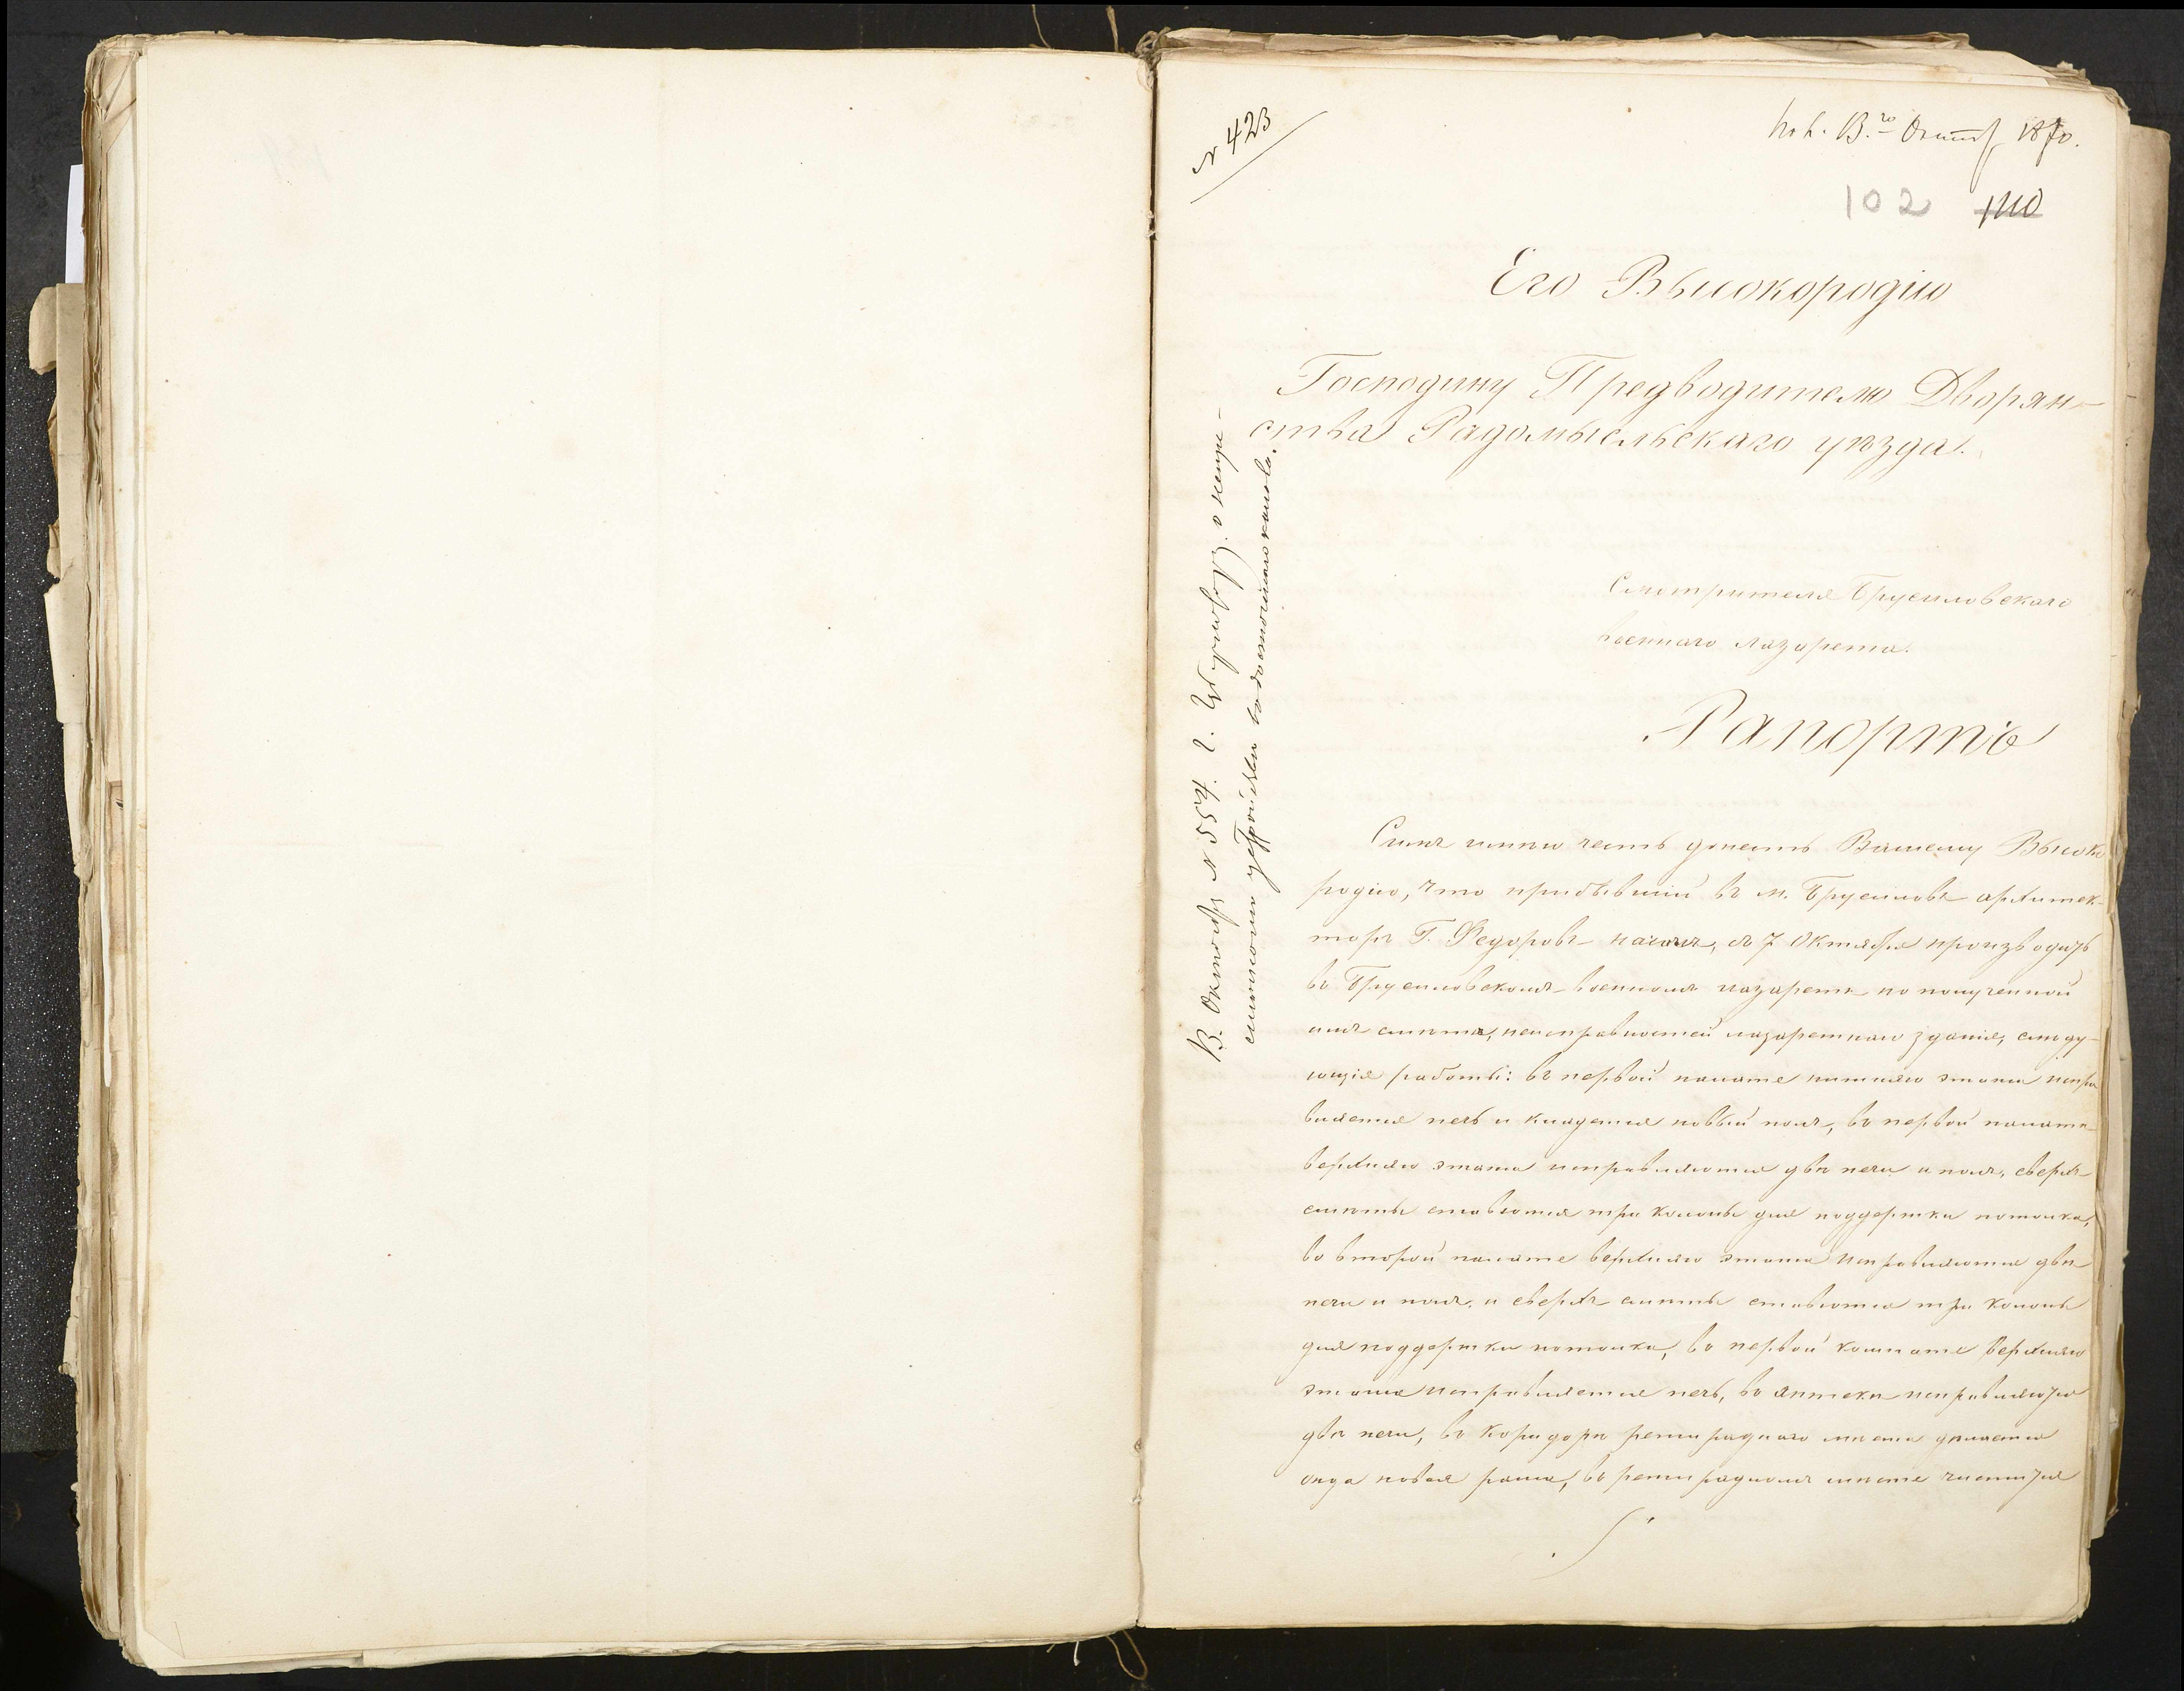 № 423
13.го Октяб 1870.
102 110
Его Высокородію
Господину Предводителю Дворян-
ства Радомысльскаго уѣзда.
Смотрителя Брусиловскаго
военнаго лазарета.
Рапортъ
Симъ имѣю честь донесть Вашему Высоко
родію, что прибывшій въ м. Брусиловъ архитек-
торъ Г. Федоровъ началъ, съ 7 Октября производить
въ Брусиловскомъ военномъ лазаретѣ по полученной
имъ смѣтѣ, неисправностей лазаретнаго зданія, слѣду-
ющія работы: въ первой палате нижняго этажа испра
вляется печь и кладется новый полъ, въ первой палатѣ
верхняго этажа исправляются двѣ печи и полъ, сверхъ
смѣты ставются три колоны для поддержки потолка,
во второй палате верхняго этажа исправляются двѣ
печи и полъ, и сверхъ смѣты ставются три колоны
для поддержки потолка, въ первой комнате верхняго
этажа исправляется печь, въ аптекѣ исправляются
двѣ печи, въ коридорѣ ретираднаго мѣста дѣлается
одна новая рама, въ ретирадномъ мѣсте чистится
13. Октября № 554. г.
смотномъ устройстве водосточнаго канала.